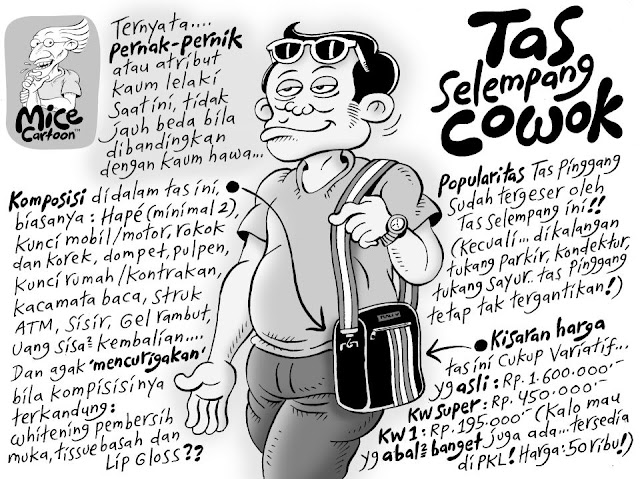 Mice
Cartoon™
Ternyata....
Pernak-pernik
atau atribut
kaum lelaki
saat ini, tidak
jauh beda bila
dibandingkan
dengan kaum hawa...
Tas
Selempang
Cowok
Komposisi didalam tas ini,
biasanya: Hapé (minimal 2),
kunci mobil/motor, rokok
dan korek, dompet, pulpen,
kunci rumah/kontrakan,
kacamata baca, struk
ATM, sisir, Gel rambut,
uang sisa² kembalian....
Dan agak 'mencurigakan'
bila kompisisinya
terkandung:
whitening pembersih
muka, tissue basah dan
Lip Gloss??
Popularitas Tas Pinggang
sudah tergeser oleh
Tas selempang ini!!
(kecuali... dikalangan
tukang parkir, kondektur,
tukang sayur.. tas pinggang
tetap tak tergantikan!)
Kisaran harga
tas ini cukup variatif...
yg asli: Rp. 1.600.000.-
KW super: Rp. 450.000.-
KW 1: Rp. 195.000.- (Kalo mau
yg abal² banget juga ada... tersedia
di PKL! Harga: 50 ribu!)